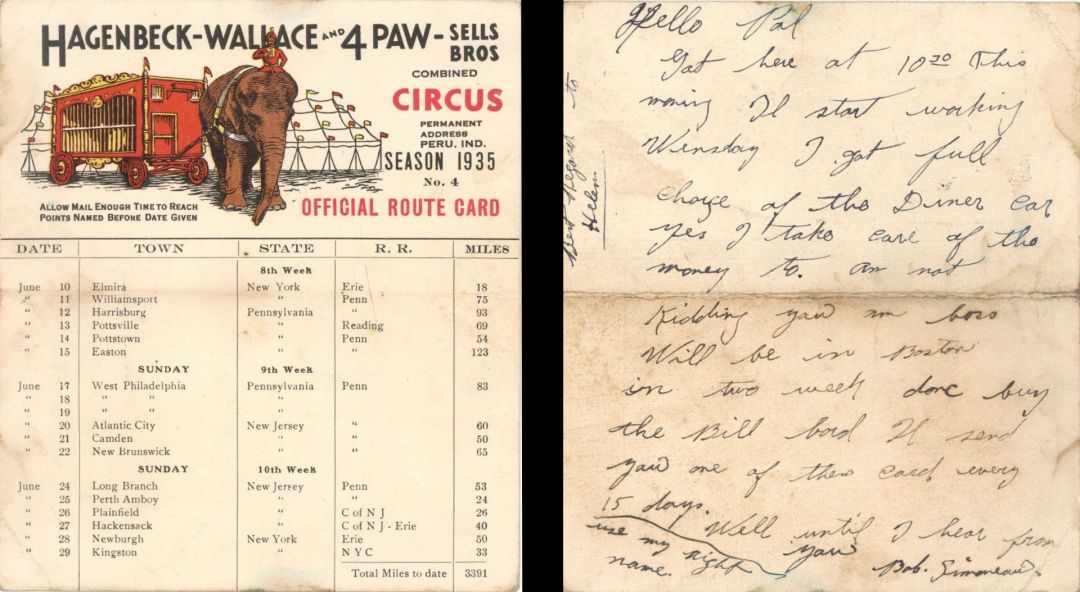 HAGENBECK-WALLACE AND 4 PAW-SELLS BROS
COMBINED
CIRCUS
PERMANENT
ADDRESS
PERU, IND.
SEASON 1935
No. 4
ALLOW MAIL ENOUGH TIME TO REACH
POINTS NAMED BEFORE DATE GIVEN
OFFICIAL ROUTE CARD
DATE TOWN STATE R. R. MILES
8th Week
June 10 Elmira New York Erie 18
" 11 Williamsport " Penn 75
" 12 Harrisburg Pennsylvania " 93
" 13 Pottsville " Reading 69
" 14 Pottstown " Penn 54
" 15 Easton " " 123
SUNDAY 9th Week
June 17 West Philadelphia Pennsylvania Penn 83
" 18 " " "
" 19 " " "
" 20 Atlantic City New Jersey " 60
" 21 Camden " " 50
" 22 New Brunswick " " 65
SUNDAY 10th Week
June 24 Long Branch New Jersey Penn 53
" 25 Perth Amboy " " 24
" 26 Plainfield " C of N J 26
" 27 Hackensack " C of N J - Erie 40
" 28 Newburgh New York Erie 50
" 29 Kingston " N Y C 33
Total Miles to date 3391
Hello Pal
Gat here at 10 30 This
moning Il start working
Wensday I got full
charge of the Diner car
yes I take care of the
money to. am not
Kidding yaw am boss
Will be in Boston
in two week donc buy
the Bill bord Il send
yaw one of thes card every
15 days.
Well until I hear from
yaw
Bob. Simoneau.
use my right
name.
Best Regard to
Helen